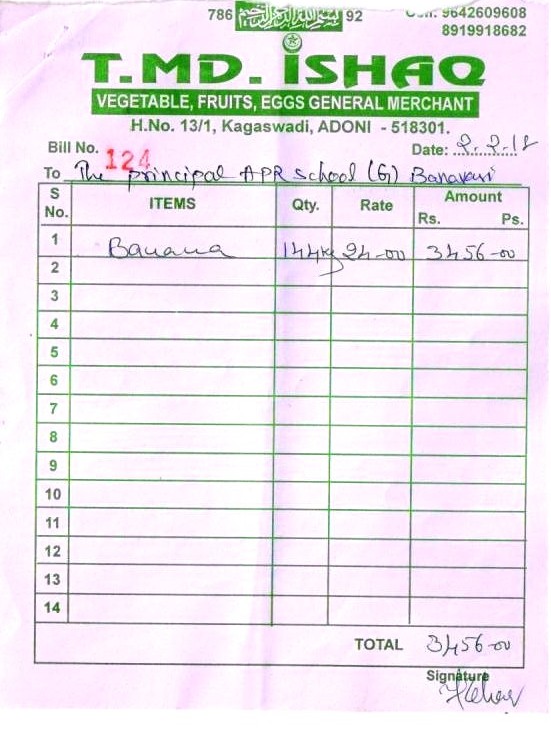 786 بسم الله الرحمن الرحيم 92
Cell: 9642609608
8919918682
T.MD. ISHAQ
VEGETABLE, FRUITS, EGGS GENERAL MERCHANT
H.No. 13/1, Kagaswadi, ADONI - 518301.
Bill No. 124 Date: 2.2.18
To The principal APR School (G) Banavasi
S No. ITEMS Qty. Rate Amount
Rs. Ps.
1 Banana 144kg 24-00 3456-00
2
3
4
5
6
7
8
9
10
11
12
13
14
TOTAL 3456-00
Signature